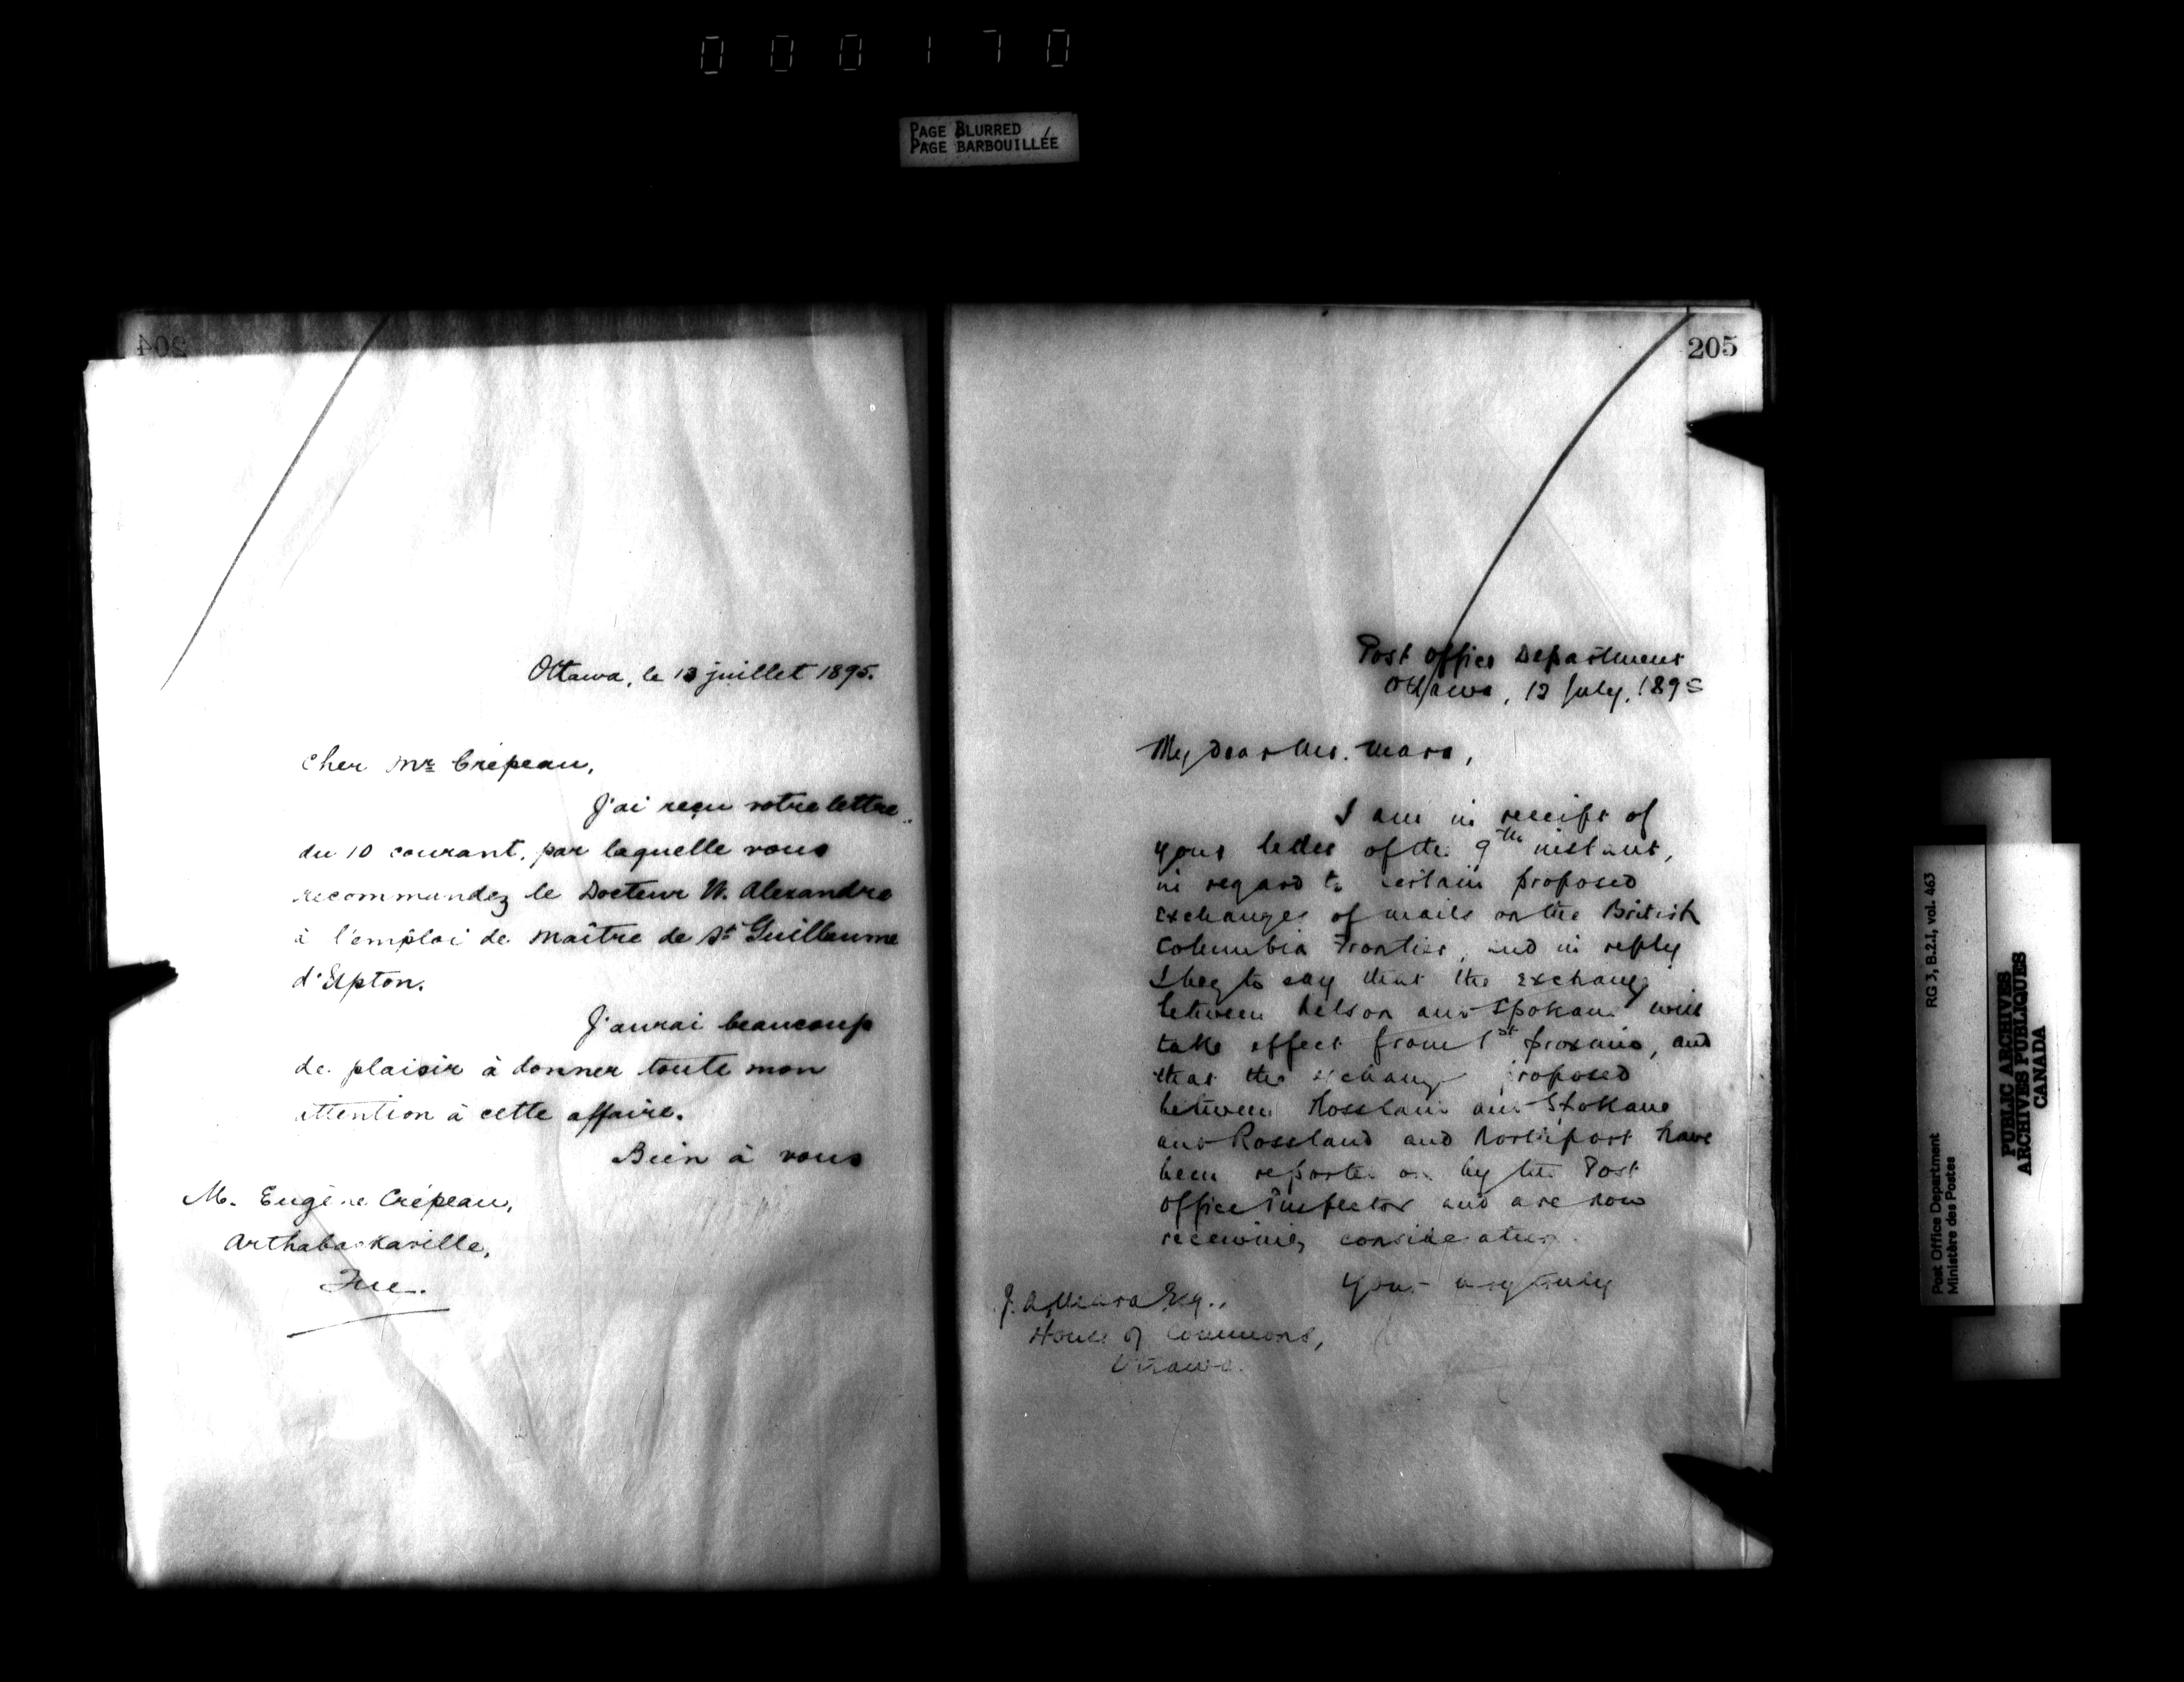 000170
PAGE BLURRED
PAGE BARBOUILLÉE
204
Ottawa, le 13 juillet 1895.
Cher Mr Crépeau,
J'ai reçu votre lettre
du 10 courant, par laquelle vous
recommandez le Docteur W. Alexandre
à l'emploi de maître de St Guillaume
d'Upton.
J'aurai beaucoup
de plaisir à donner toute mon
attention à cette affaire.
Bien à vous
M. Eugène Crépeau,
Arthabaskaville,
Que.
205
Post Office Department
Ottawa, 12 July, 1895
My dear Mr. Mara,
I am in receipt of
your letter of the 9th instant,
in regard to certain proposed
exchanges of mails on the British
Columbia Frontier, and in reply
I beg to say that the exchange
between Nelson and Spokane will
take effect from 1st proximo, and
that the exchange proposed
between Rossland and Spokane
and Rossland and Northport have
been reported on by the Post
Office Inspector and are now
receiving consideration.
Yours very truly
J. A. Mara Esq.,
House of Commons,
Ottawa.
RG 3, B.2.1, vol. 463
Post Office Department
Ministère des Postes
PUBLIC ARCHIVES
ARCHIVES PUBLIQUES
CANADA